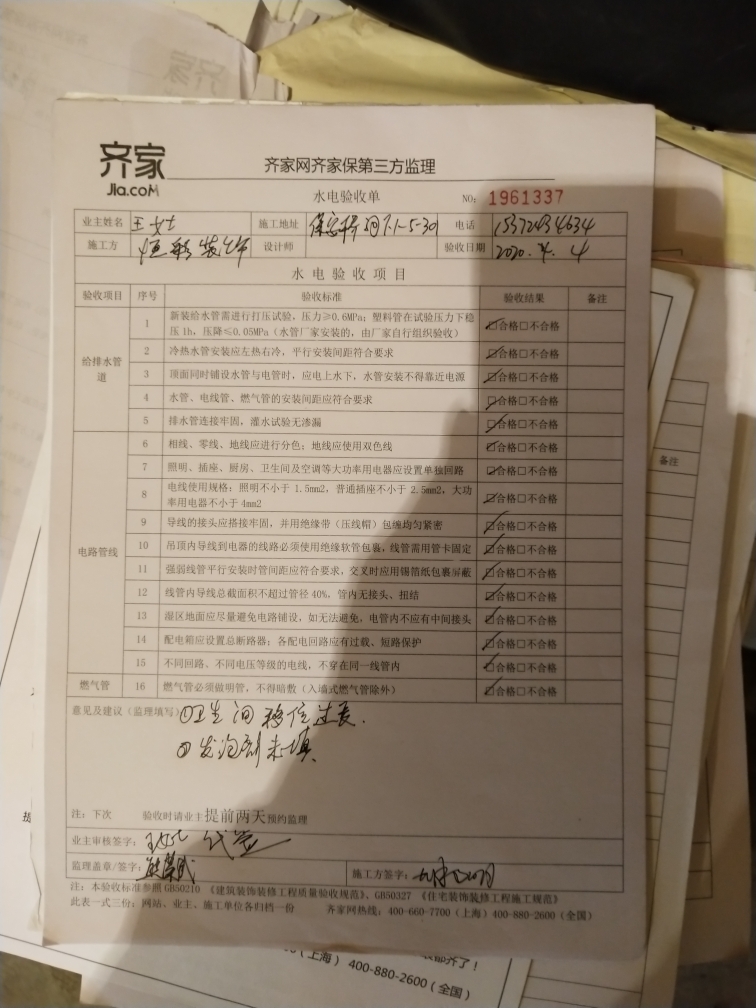 齐家
Jia.coM
齐家网齐家保第三方监理
水电验收单 NO: 1961337
业主姓名 王女士 施工地址 7.1-5-301 电话 15372434634
施工方 恒彩装饰 设计师 验收日期 2020.4.4
水电验收项目
验收项目 序号 验收标准 验收结果 备注
给排水管道
1 新装给水管需进行打压试验，压力≥0.6MPa；塑料管在试验压力下稳
压1h，压降≤0.05MPa（水管厂家安装的，由厂家自行组织验收） ☑合格□不合格
2 冷热水管安装应左热右冷，平行安装间距符合要求 ☑合格□不合格
3 顶面同时铺设水管与电管时，应电上水下，水管安装不得靠近电源 ☑合格□不合格
4 水管、电线管、燃气管的安装间距应符合要求 ☑合格□不合格
5 排水管连接牢固，灌水试验无渗漏 ☑合格□不合格
电路管线
6 相线、零线、地线应进行分色；地线应使用双色线 ☑合格□不合格
7 照明、插座、厨房、卫生间及空调等大功率用电器应设置单独回路 ☑合格□不合格
8 电线使用规格：照明不小于 1.5mm2，普通插座不小于 2.5mm2，大功
率用电器不小于 4mm2 ☑合格□不合格
9 导线的接头应搭接牢固，并用绝缘带（压线帽）包缠均匀紧密 ☑合格□不合格
10 吊顶内导线到电器的线路必须使用绝缘软管包裹，线管需用管卡固定 ☑合格□不合格
11 强弱线管平行安装时管间距应符合要求，交叉时应用锡箔纸包裹屏蔽 ☑合格□不合格
12 线管内导线总截面积不超过管径 40%，管内无接头、扭结 ☑合格□不合格
13 湿区地面应尽量避免电路铺设，如无法避免，电管内不应有中间接头 ☑合格□不合格
14 配电箱应设置总断路器；各配电回路应有过载、短路保护 ☑合格□不合格
15 不同回路、不同电压等级的电线，不穿在同一线管内 ☑合格□不合格
燃气管 16 燃气管必须做明管，不得暗敷（入墙式燃气管除外） ☑合格□不合格
意见及建议（监理填写） ①卫生间移位过长.
②发泡剂未填
注：下次 验收时请业主提前两天预约监理
业主审核签字： 代签
监理盖章/签字： 施工方签字：
注：本验收标准参照 GB50210 《建筑装饰装修工程质量验收规范》、GB50327 《住宅装饰装修工程施工规范》
此表一式三份：网站、业主、施工单位各归档一份 齐家网热线：400-660-7700（上海）400-880-2600（全国）
备注
都齐了！
（上海） 400-880-2600（全国）